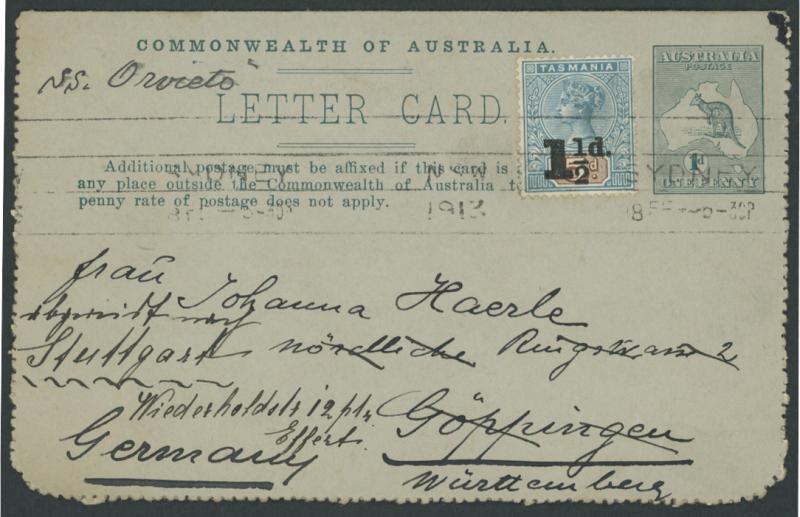 COMMONWEALTH OF AUSTRALIA.
S.S. "Orvieto"
LETTER CARD.
TASMANIA
1½d.
AUSTRALIA
POSTAGE
1d
ONE PENNY
Additional postage must be affixed if this card is
any place outside the Commonwealth of Australia to
penny rate of postage does not apply.
SYDNEY
N.S.W.
1913
SYDNEY
Frau Johanna Haerle
abgereist nach
Stuttgart nördliche Ringstrasse 2
Wiederholdstr 12 ptr
Göppingen
Effert.
Germany
Württemberg